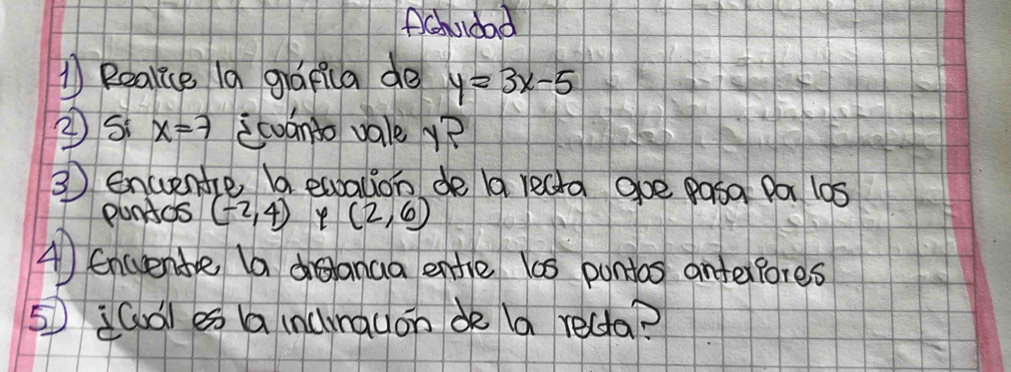 Actividad
1) Realice la gráfica de y = 3x-5
2) Si x=7 ¿cuánto vale y?
3) encuentre la ecuación de la recta que pasa por los
puntos (-2,4) y (2,6)
4) Encuentre la distancia entre los puntos anteriores
5) ¿Cuál es la inclinación de la recta?